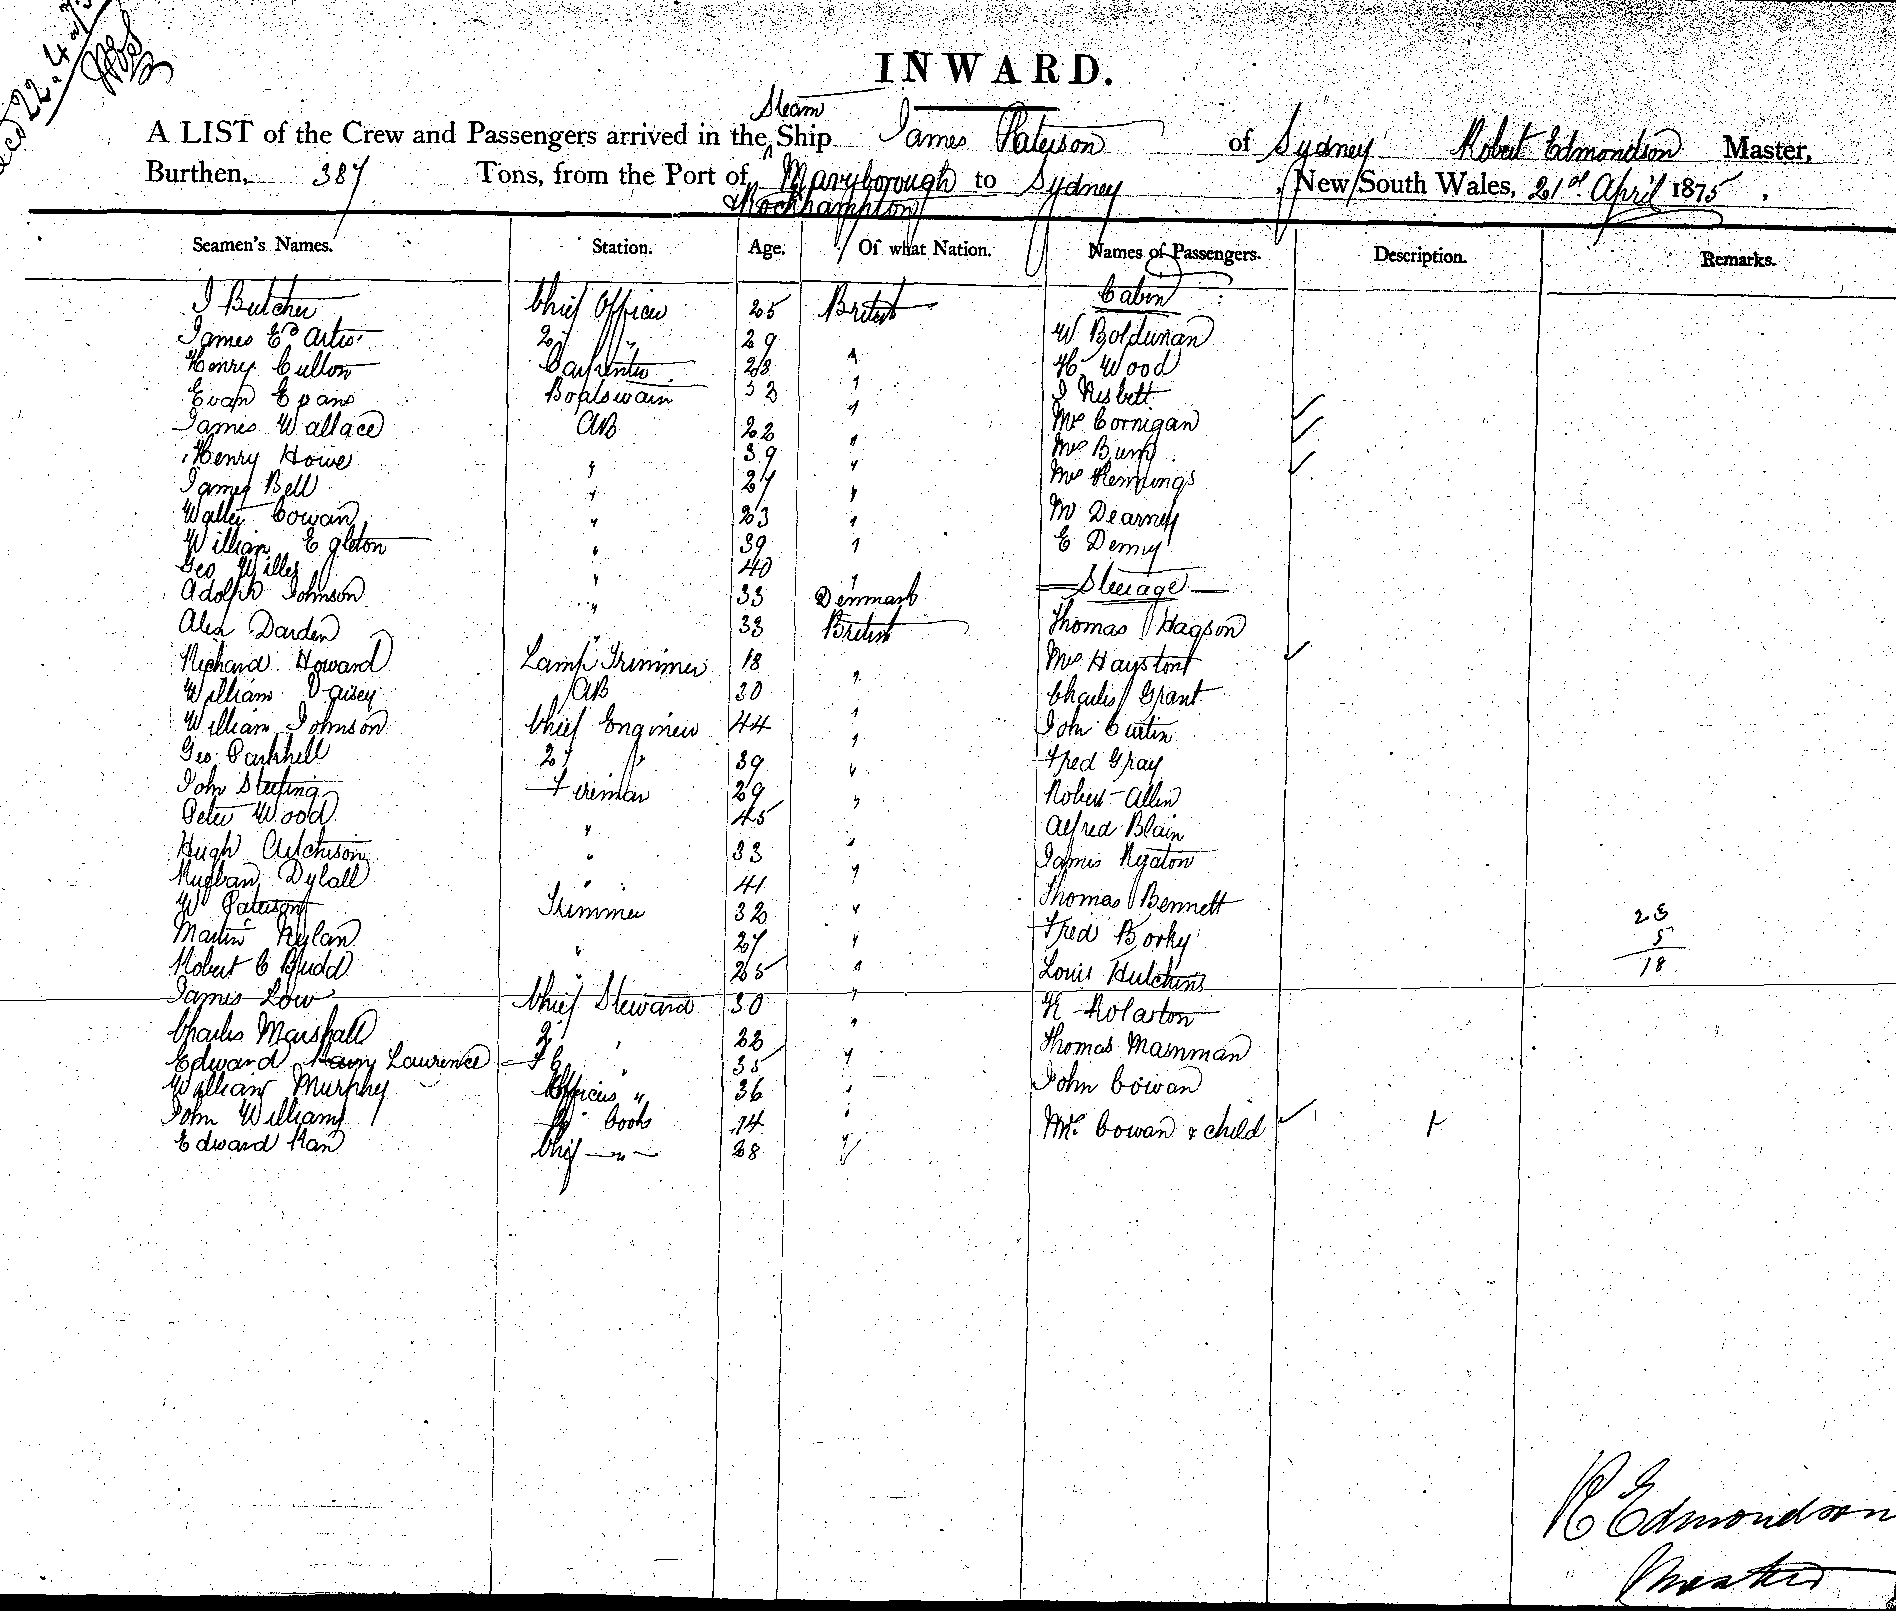 recd 22.4.75
INWARD.
Steam
A LIST of the Crew and Passengers arrived in the Ship James Paterson of Sydney Robert Edmondson Master,
Burthen, 387 Tons, from the Port of Maryborough to Sydney New South Wales, 21st April 1875.
& Rockhampton
Seamen's Names. Station. Age. Of what Nation. Names of Passengers. Description. Remarks.
J Butcher Chief Officer 25 British Cabin
James Ed 2d " 29 W
Henry Cullon Carpenter 28 " H Wood
Evan Evans Boatswain 33 " J Nisbett
James Wallace AB 22 " Mrs Cornigan
Henry Howe " 39 " Mrs
James Bell " 27 " Mrs Hemmings
Walter Cowan " 23 " M Dearney
William Egleton " 39 " E Denny
Geo Willes " 40 "
Adolph Johnson " 33 Denmark Steerage
Alex Darden " 33 British Thomas Hagson
Richard Howard Lamp Trimmer 18 " Mrs Haystont
William Daisey AB 30 " Charles Grant
William Johnson Chief Engineer 44 " John Curtin
Geo Parkhell 2d " 39 " Fred Gray
John Sterling Fireman 29 " Robert Allen
Peter Wood " 45 " Alfred Blain
Hugh Aitchison " 33 " James
Dylall " 41 " Thomas Bennett
W Paterson Trimmer 32 "
Martin Nylan " 27 " Fred Borky
Robert C Budd " 25 " Louis Hutchins
James Low Chief Steward 30 " R Rolaston
Charles Marshall 2d " 22 " Thomas Mainman
Edward Harry Lawrence F C " 35 " John Cowan
William Murphy Officers " 36 "
John Williams Cook 14 " Mrs Cowan & child
Edward Kan Chief " 28 "
23
5
18
R Edmondson
Master